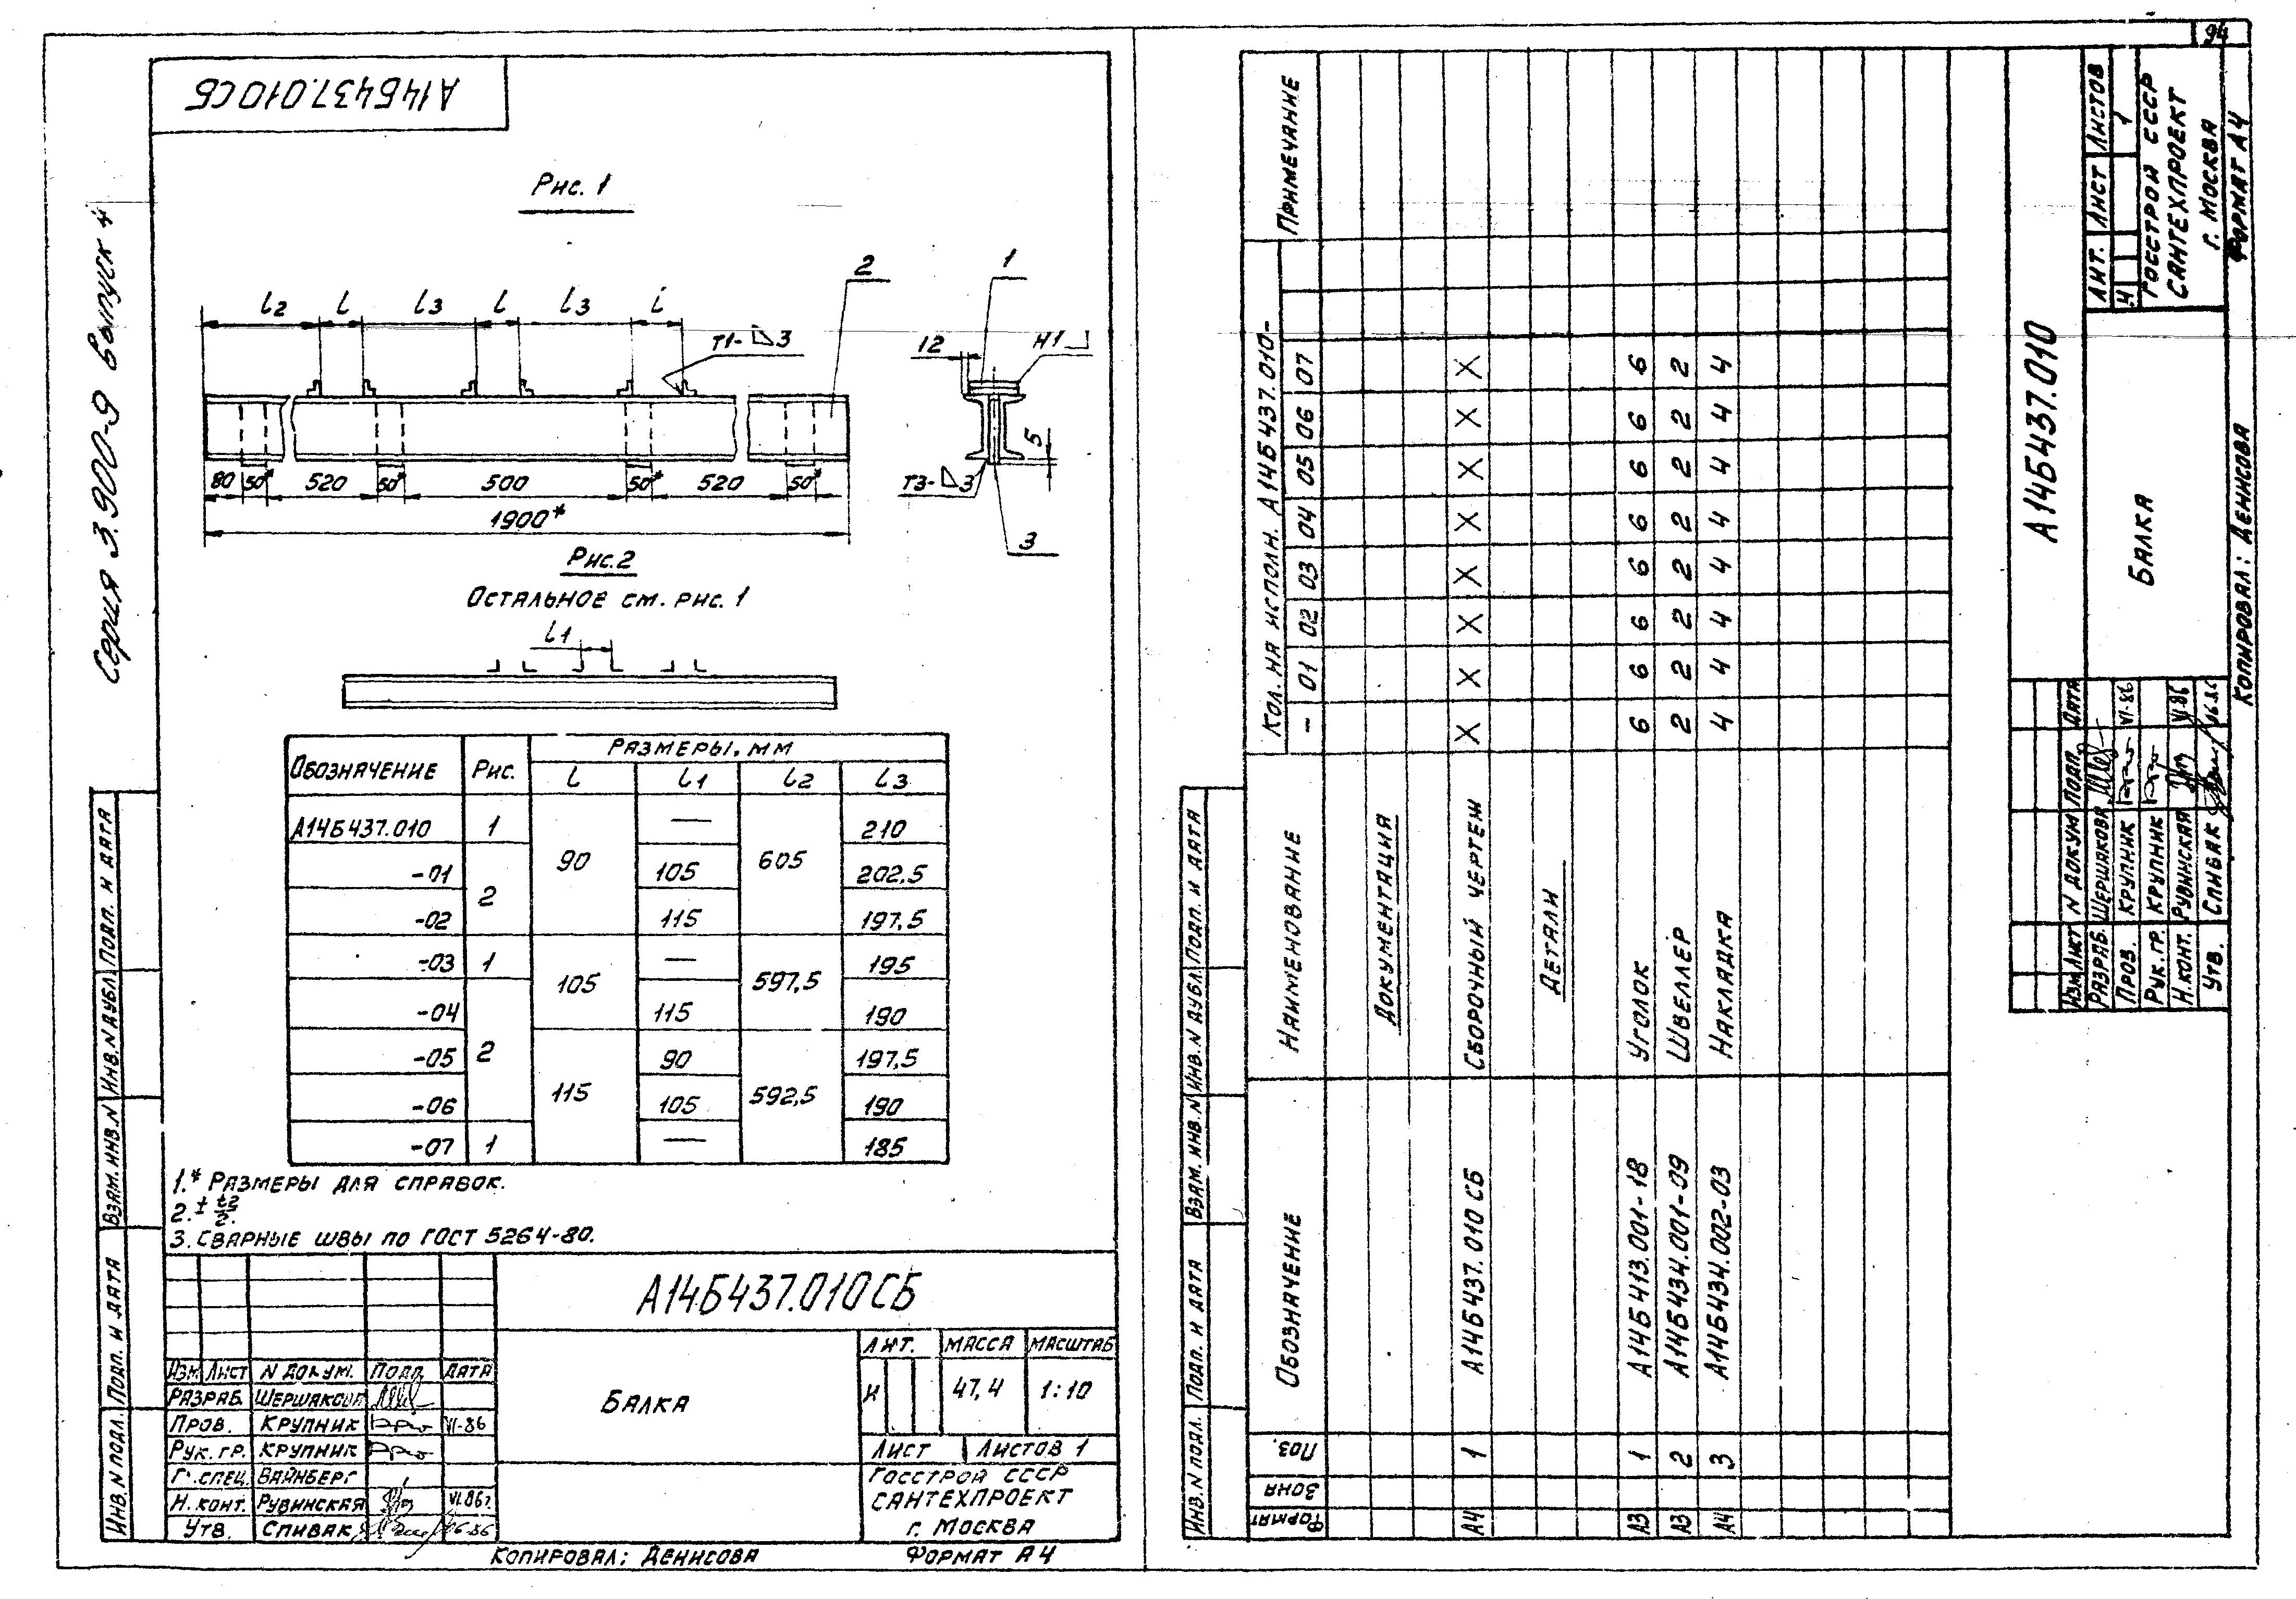 94
А14Б437.010СБ
Серия 3.900-9 Выпуск 4
Рис. 1
l2 l l3 l l3 l
Т1-◺3
2
80 50* 520 50* 500 50* 520 50*
1900*
1
12
Н1
5
Т3-◺3
3
Рис.2
Остальное см. рис. 1
l1
Обозначение Рис. Размеры, мм
l l1 l2 l3
А14Б437.010 1 90 — 605 210
-01 2 105 202,5
-02 115 197,5
-03 1 105 — 597,5 195
-04 2 115 190
-05 115 90 592,5 197,5
-06 105 190
-07 1 — 185
1.* Размеры для справок.
2. ± t2/2.
3. Сварные швы по ГОСТ 5264-80.
А14Б437.010СБ
Балка
Лит. Масса Масштаб
И 47,4 1:10
Лист Листов 1
Госстрой СССР
Сантехпроект
г. Москва
Изм Лист N докум. Подп. Дата
Разраб. Шершакова
Пров. Крупник VI-86
Рук. гр. Крупник
Г. спец. Вайнберг
Н. конт. Рувинская VI.86г.
Утв. Спивак 06.86
Копировал: Денисова Формат А4
Инв. N подл. Подп. и дата Взам. инв. N Инв. N дубл. Подп. и дата
Формат Зона Поз. Обозначение Наименование Кол. на исполн. А14Б437.010- Примечание
- 01 02 03 04 05 06 07
Документация
А4 1 А14Б437.010 СБ Сборочный чертеж X X X X X X X X
Детали
А3 1 А14Б413.001-18 Уголок 6 6 6 6 6 6 6 6
А3 2 А14Б434.001-09 Швеллер 2 2 2 2 2 2 2 2
А4 3 А14Б434.002-03 Накладка 4 4 4 4 4 4 4 4
Инв. N подл. Подп. и дата Взам. инв. N Инв. N дубл. Подп. и дата
А14Б437.010
Изм Лист N докум Подп. Дата
Разраб. Шершакова
Пров. Крупник VI-86
Рук. гр. Крупник
Н. конт. Рувинская VI.86
Утв. Спивак
Балка
Лит. Лист Листов
И 1
Госстрой СССР
Сантехпроект
г. Москва
Копировал: Денисова Формат А4